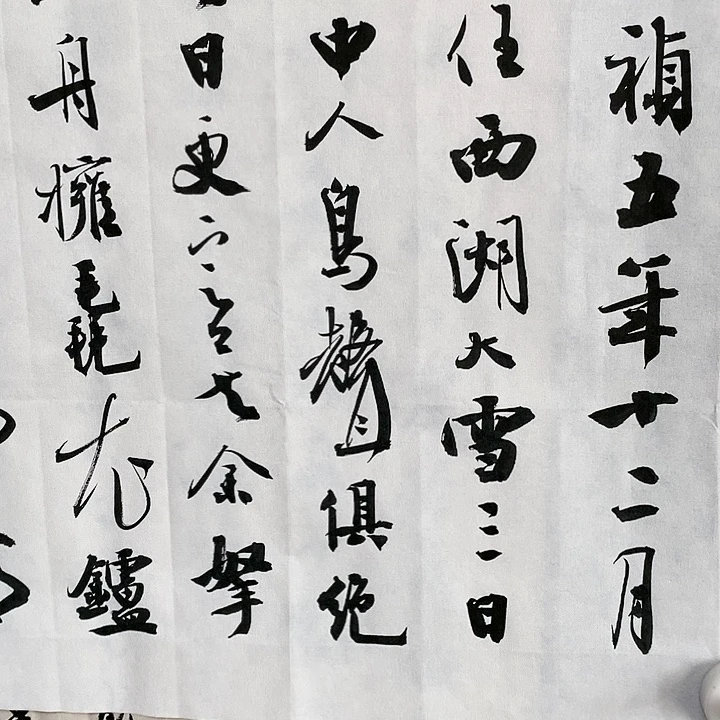 禎五年十二月
住西湖大雪三日
中人鳥聲俱絕
日更定矣余拏
舟擁毳衣鑪